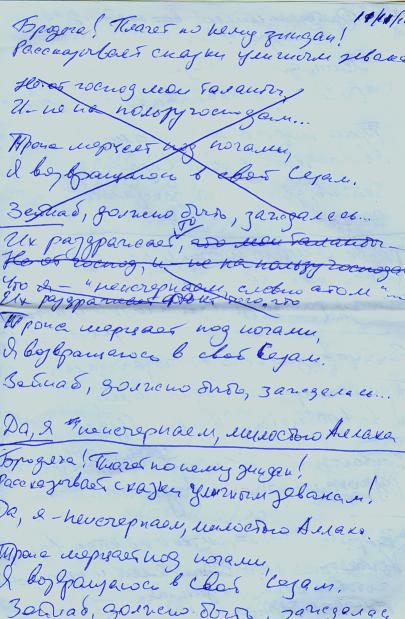 Бродяга! Плачет по нему зиндан!
Рассказывает сказки уличным зевакам
Не от господ мои таланты,
И не на пользу господам...
Тропа мерцает под ногами,
Я возвращаюсь в свой Сезам.
Зейнаб, должно быть, заждалась...
Их раздражает, что мои таланты –
Не от господ, и – не на пользу господам
Что я – "неисчерпаем, словно атом"...
Их раздражает того, что
Тропа мерцает под ногами,
Я возвращаюсь в свой Сезам.
Зейнаб, должно быть, заждалась...
Да, я неисчерпаем, милостью Аллаха
Бродяга! Плачет по нему зиндан!
Рассказывает сказки уличным зевакам!
Да, я – неисчерпаем, милостью Аллаха.
Тропа мерцает под ногами,
Я возвращаюсь в свой Сезам.
Зейнаб, должно быть, заждалась